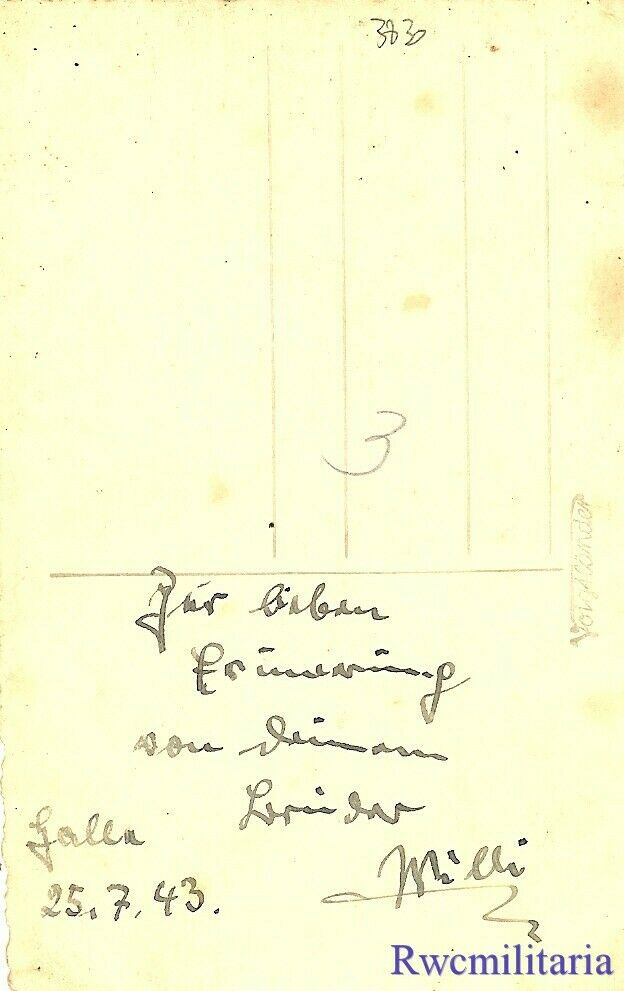 3
Voigtländer
Zur lieben
Erinnerung
von deinem
Bruder
Halle
Willi
25.7.43.
Rwcmilitaria